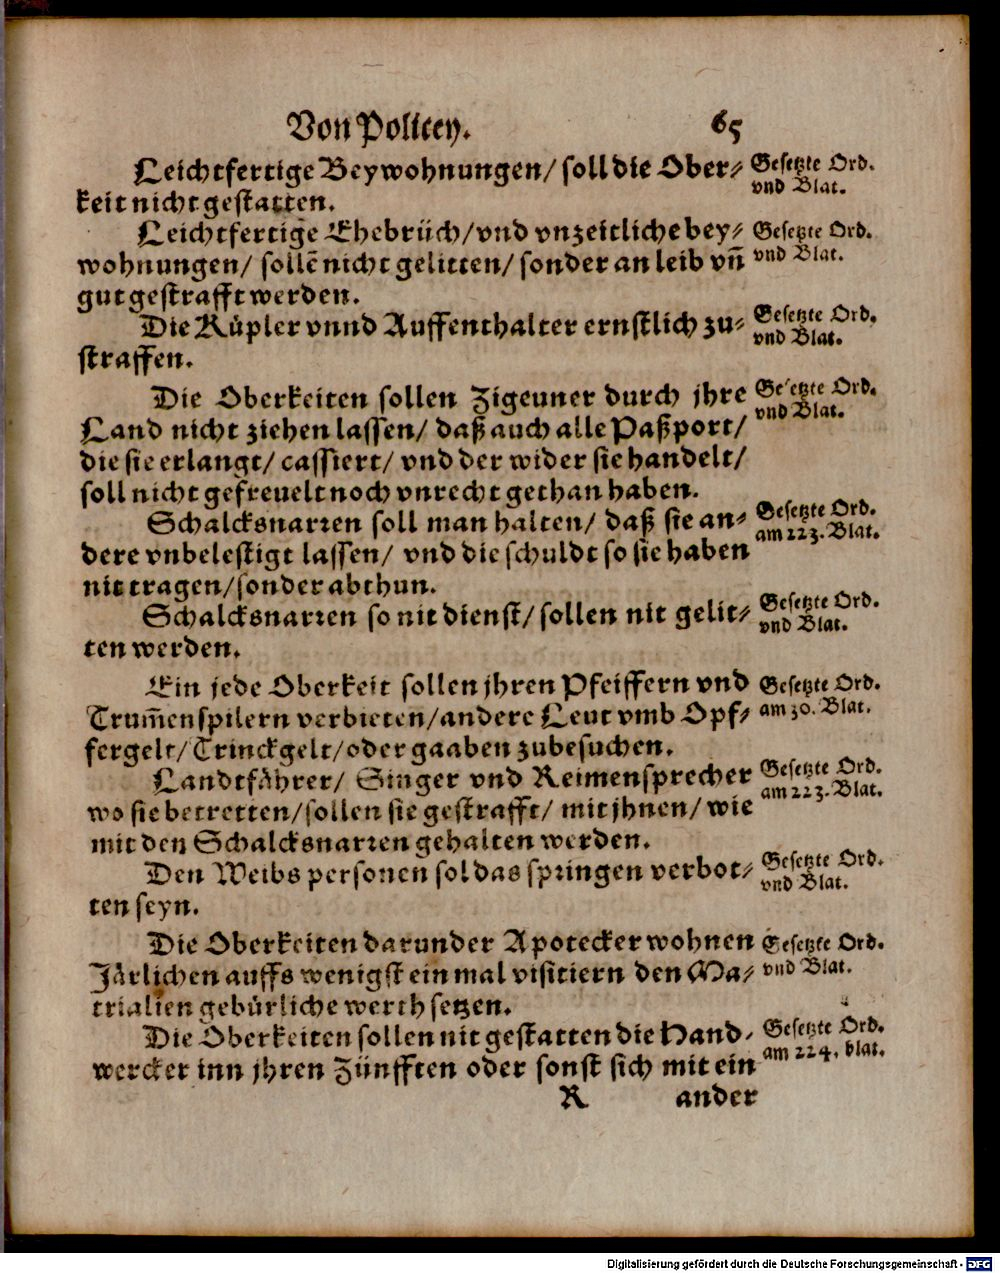 Von Policey. 65
Leichtfertige Beywohnungen/ soll die Ober⸗
keit nicht gestatten.
Gesetzte Ord.
vnd Blat.
Leichtfertige Ehebrüch/ vnd vnzeitliche bey⸗
wohnungen/ sollẽ nicht gelitten/ sonder an leib vñ
gut gestrafft werden.
Gesetzte Ord.
vnd Blat.
Die Rüpler vnnd Auffenthalter ernstlich zu⸗
straffen.
Gesetzte Ord.
vnd Blat.
Die Oberkeiten sollen Zigeuner durch jhre
Land nicht ziehen lassen/ daß auch alle Paßport/
die sie erlangt/ cassiert/ vnd der wider sie handelt/
soll nicht gefreuelt noch vnrecht gethan haben.
Gesetzte Ord.
vnd Blat.
Schalcksnarren soll man halten/ daß sie an⸗
dere vnbelestigt lassen/ vnd die schuldt so sie haben
nit tragen/ sonder abthun.
Gesetzte Ord.
am 223. Blat.
Schalcksnarren so nit dienst/ sollen nit gelit⸗
ten werden.
Gesetzte Ord.
vnd Blat.
Ein jede Oberkeit sollen jhren Pfeiffern vnd
Trum̃enspilern verbieten/ andere Leut vmb Opf⸗
fergelt/ Trinckgelt/ oder gaaben zubesuchen.
Gesetzte Ord.
am 30. Blat.
Landtfährer/ Singer vnd Reimensprecher
wo sie betretten/ sollen sie gestrafft/ mit jhnen/ wie
mit den Schalcksnarren gehalten werden.
Gesetzte Ord.
am 223. Blat.
Den Weibs personen sol das springen verbot⸗
ten seyn.
Gesetzte Ord.
vnd Blat.
Die Oberkeiten darunder Apotecker wohnen
Järlichen auffs wenigst ein mal visitiern den Ma⸗
trialien gebürliche werth setzen.
Gesetzte Ord.
vnd Blat.
Die Oberkeiten sollen nit gestatten die Hand⸗
wercker inn jhren Zünfften oder sonst sich mit ein
Gesetzte Ord.
am 224. blat.
R ander
Digitalisierung gefördert durch die Deutsche Forschungsgemeinschaft - DFG